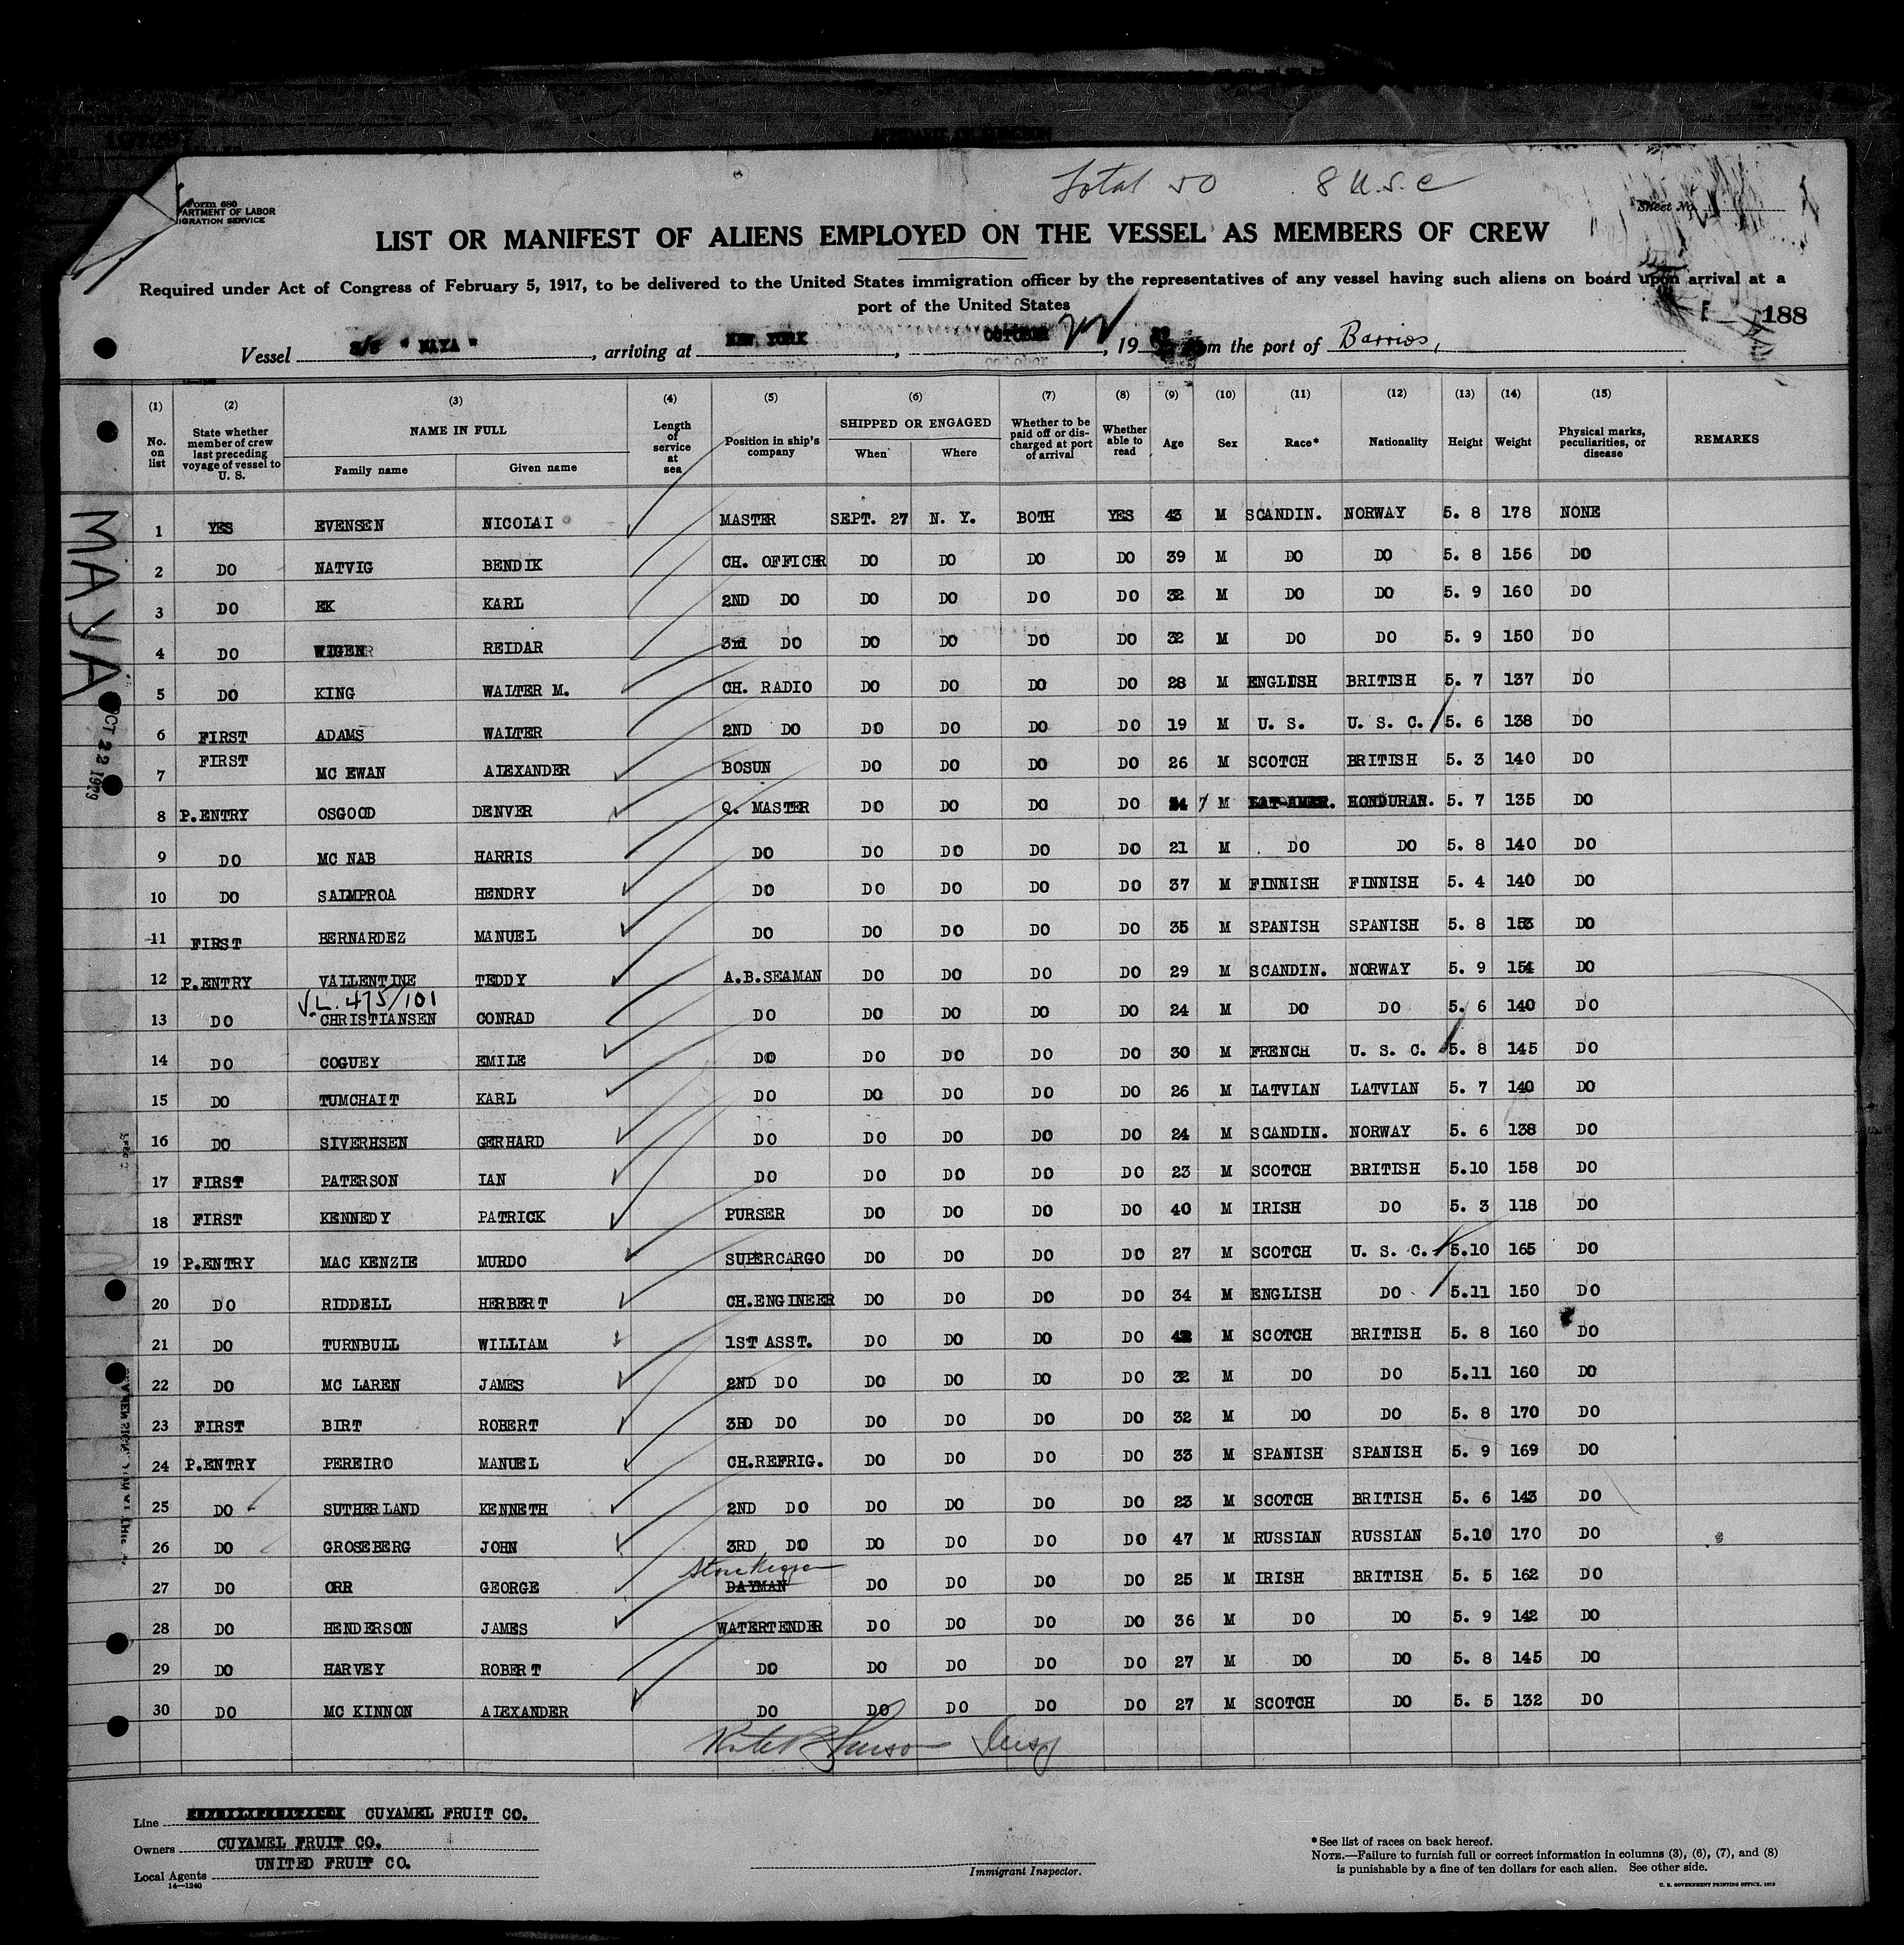 Total 50 8 U.S.C
Form 680
ARTMENT OF LABOR
IGRATION SERVICE
Sheet No. 1
LIST OR MANIFEST OF ALIENS EMPLOYED ON THE VESSEL AS MEMBERS OF CREW
Required under Act of Congress of February 5, 1917, to be delivered to the United States immigration officer by the representatives of any vessel having such aliens on board upon arrival at a
port of the United States
188
Vessel S/S " MAYA ", arriving at NEW YORK, OCTOBER 22, 19 29 from the port of Barrios,
(1) (2) (3) (4) (5) (6) (7) (8) (9) (10) (11) (12) (13) (14) (15)
No. on list State whether member of crew last preceding voyage of vessel to U. S. NAME IN FULL Family name Given name Length of service at sea Position in ship's company SHIPPED OR ENGAGED When Where Whether to be paid off or discharged at port of arrival Whether able to read Age Sex Race* Nationality Height Weight Physical marks, peculiarities, or disease REMARKS
1 YES EVENSEN NICOLAI MASTER SEPT. 27 N. Y. BOTH YES 43 M SCANDIN. NORWAY 5. 8 178 NONE
2 DO NATVIG BENDIK CH. OFFICER DO DO DO DO 39 M DO DO 5. 8 156 DO
3 DO EK KARL 2ND DO DO DO DO DO 32 M DO DO 5. 9 160 DO
4 DO WIGEN REIDAR 3rd DO DO DO DO DO 32 M DO DO 5. 9 150 DO
5 DO KING WALTER M. CH. RADIO DO DO DO DO 28 M ENGLISH BRITISH 5. 7 137 DO
6 FIRST ADAMS WALTER 2ND DO DO DO DO DO 19 M U. S. U. S. C. 5. 6 138 DO
7 FIRST MC EWAN ALEXANDER BOSUN DO DO DO DO 26 M SCOTCH BRITISH 5. 3 140 DO
8 P.ENTRY OSGOOD DENVER Q. MASTER DO DO DO DO 24 M LAT-AMER. HONDURAN. 5. 7 135 DO
9 DO MC NAB HARRIS DO DO DO DO DO 21 M DO DO 5. 8 140 DO
10 DO SALMPROA HENDRY DO DO DO DO DO 37 M FINNISH FINNISH 5. 4 140 DO
11 FIRST BERNARDEZ MANUEL DO DO DO DO DO 35 M SPANISH SPANISH 5. 8 153 DO
12 P.ENTRY VALLENTINE TEDDY A.B.SEAMAN DO DO DO DO 29 M SCANDIN. NORWAY 5. 9 154 DO
V.L. 475/101
13 DO CHRISTIANSEN CONRAD DO DO DO DO DO 24 M DO DO 5. 6 140 DO
14 DO COGUEY EMILE DO DO DO DO DO 30 M FRENCH U. S. C. 5. 8 145 DO
15 DO TUMCHAIT KARL DO DO DO DO DO 26 M LATVIAN LATVIAN 5. 7 140 DO
16 DO SIVERHSEN GERHARD DO DO DO DO DO 24 M SCANDIN. NORWAY 5. 6 138 DO
17 FIRST PATERSON IAN DO DO DO DO DO 23 M SCOTCH BRITISH 5.10 158 DO
18 FIRST KENNEDY PATRICK PURSER DO DO DO DO 40 M IRISH DO 5. 3 118 DO
19 P.ENTRY MAC KENZIE MURDO SUPERCARGO DO DO DO DO 27 M SCOTCH U. S. C. 5.10 165 DO
20 DO RIDDELL HERBERT CH.ENGINEER DO DO DO DO 34 M ENGLISH DO 5.11 150 DO
21 DO TURNBULL WILLIAM 1ST ASST. DO DO DO DO 42 M SCOTCH BRITISH 5. 8 160 DO
22 DO MC LAREN JAMES 2ND DO DO DO DO DO 32 M DO DO 5.11 160 DO
23 FIRST BIRT ROBERT 3RD DO DO DO DO DO 32 M DO DO 5. 8 170 DO
24 P.ENTRY PEREIRO MANUEL CH.REFRIG. DO DO DO DO 33 M SPANISH SPANISH 5. 9 169 DO
25 DO SUTHERLAND KENNETH 2ND DO DO DO DO DO 23 M SCOTCH BRITISH 5. 6 143 DO
26 DO GROSEBERG JOHN 3RD DO DO DO DO DO 47 M RUSSIAN RUSSIAN 5.10 170 DO
Storekeeper
27 DO ORR GEORGE DAYMAN DO DO DO DO 25 M IRISH BRITISH 5. 5 162 DO
28 DO HENDERSON JAMES WATERTENDER DO DO DO DO 36 M DO DO 5. 9 142 DO
29 DO HARVEY ROBERT DO DO DO DO DO 27 M DO DO 5. 8 145 DO
30 DO MC KINNON ALEXANDER DO DO DO DO DO 27 M SCOTCH DO 5. 5 132 DO
MAYA
OCT 22 1929
Line CUYAMEL FRUIT CO.
Owners CUYAMEL FRUIT CO.
Local Agents UNITED FRUIT CO.
14—1240
Immigrant Inspector.
*See list of races on back hereof.
NOTE.—Failure to furnish full or correct information in columns (3), (6), (7), and (8)
is punishable by a fine of ten dollars for each alien. See other side.
U. S. GOVERNMENT PRINTING OFFICE. 1919